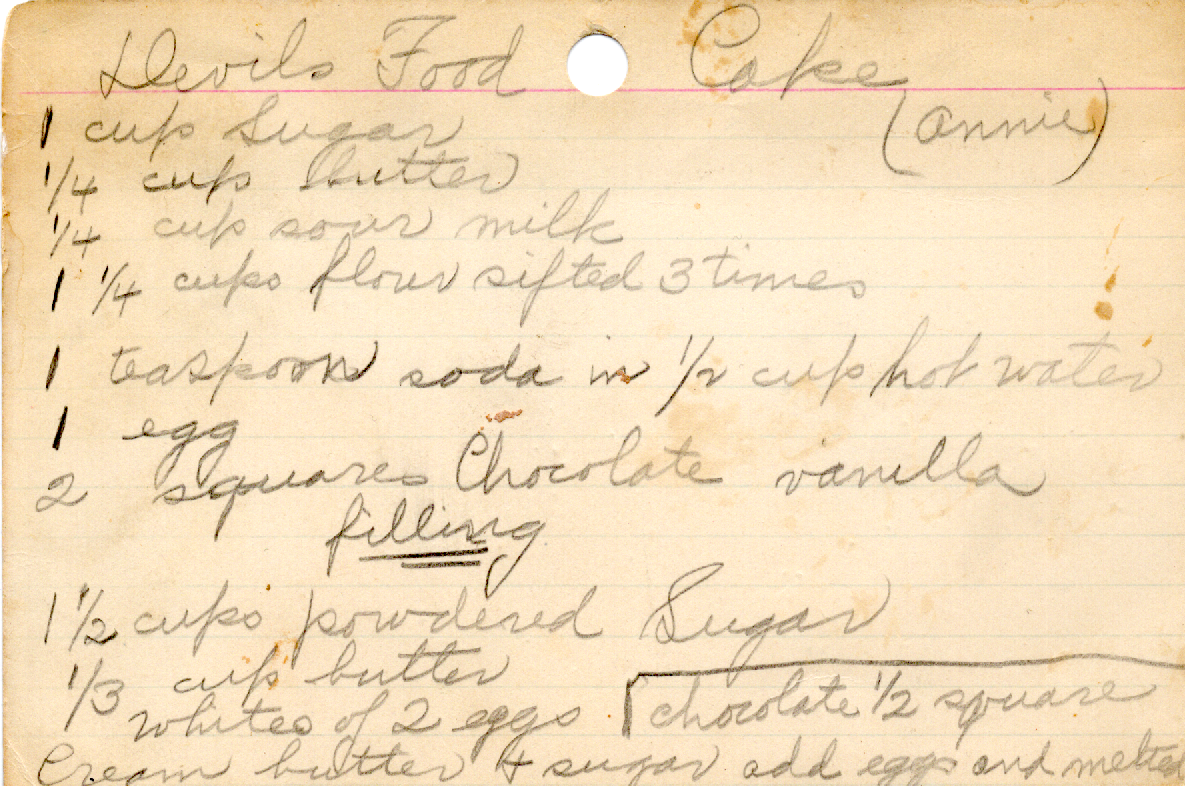 Devils Food Cake
(Annie)
1 cup Sugar
1/4 cup butter
1/4 cup sour milk
1 1/4 cups flour sifted 3 times
1 teaspoon soda in 1/2 cup hot water
1 egg
2 squares Chocolate vanilla
filling
1 1/2 cups powdered Sugar
1/3 cup butter
whites of 2 eggs chocolate 1/2 square
Cream butter + sugar add eggs and melted